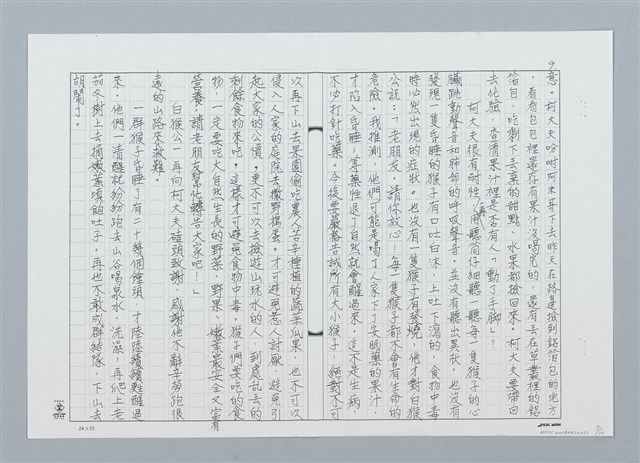 意。柯大夫吩咐阿木哥下去昨天在路邊撿到鋁箔包的地方
，看看包包裡還在有果汁沒喝完的，還有丟在草叢裡的鋁
箔包、吃剩下丟棄的甜點、水果都撿回來，柯大夫要帶回
去化驗，查清果汁裡是否有人「動了手腳」？
柯大夫很有耐性，再用聽筒仔細聽一聽每一隻猴子的心
臟跳動聲音和肺部的呼吸聲音，並沒有聽出異狀，也沒有
發現一隻昏睡的猴子有口吐白沫，上吐下瀉的，食物中毒
時必然出現的症狀。也沒有一隻猴子有發燒，他才對白猴
公說：「老朋友，請你放心！每一隻猴子都不會有生命的
危險。我推測，他們可能是喝了人家下了安眠藥的果汁，
才陷入昏睡，等藥性退了自然就會醒過來，這不是生病，
不必打針吃藥。今後要嚴格告誡所有大小猴子，絕對不可
次再下山去果園偷吃農人苦辛種植的蔬菜瓜果，也不可次
侵入人家的庭院去撒野搗蛋。才可避免惹人討厭，避免引
起大家的公憤。更不可次去撿遊山玩水的人，到處亂丟的
剩餘食物來吃。這樣才可避免食物中毒。猴子們要吃的食
物，一定要吃大自然生長的野菜、野果、嫩葉最安全又富有
營養，請老朋友幫忙轉告大家吧！」
白猴公一再向柯大夫磕頭致謝，感謝他不辭辛勞跑很
遠的山路來救難。
一群猴子昏睡了有二十幾個鐘頭，才陸陸續續甦醒過
來。他們一清醒就紛紛跑去山谷喝泉水、洗澡，再爬上老
茄苳樹上去摘嫩葉填飽肚子，再也不敢成群結隊，下山去
胡鬧了。
24×25